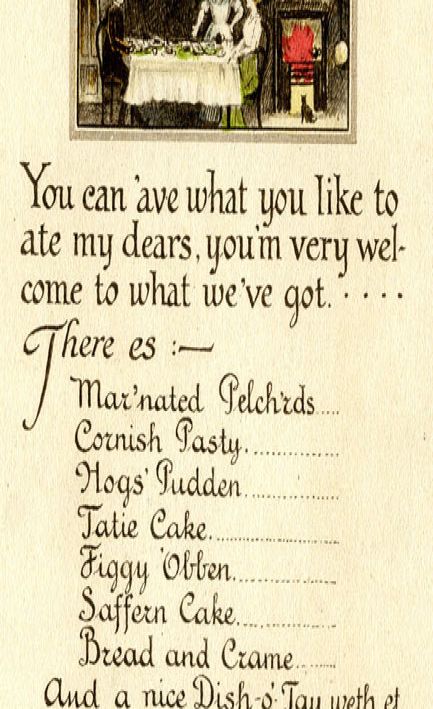 You can 'ave what you like to
ate my dears, you'm very wel-
come to what we've got. . . . .
There es :—
Mar'nated Pelch'rds....
Cornish Pasty...............
Hogs' Pudden...............
Tatie Cake....................
Figgy 'Obben.................
Saffern Cake.................
Bread and Crame.......
And a nice Dish-o'-Tay weth et